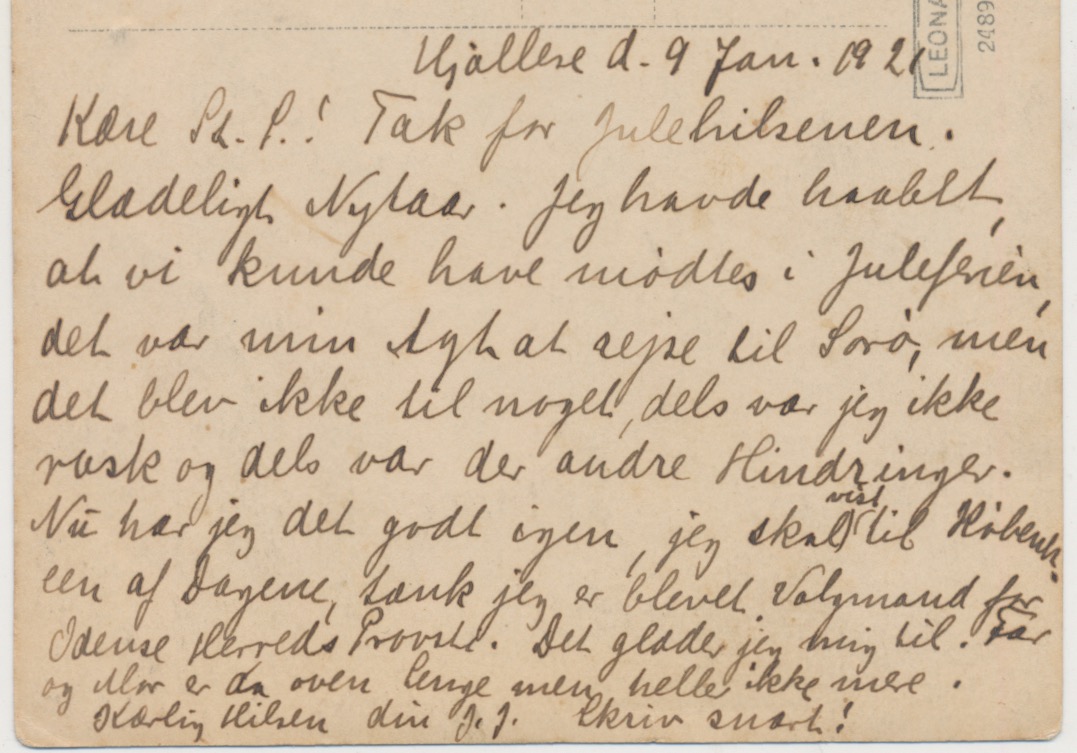 Hjallese d. 9 Jan. 1921
LEONA
2489
Kære St. P.! Tak for Julehilsenen.
Glædeligt Nytaar. Jeg havde haabet,
at vi kunde have mødtes i Juleferien,
det var min Agt at rejse til Sorø, men
det blev ikke til noget, dels var jeg ikke
rask og dels var der andre Hindringer.
Nu har jeg det godt igen, jeg skal vist til Københ.
een af Dagene, tænk jeg er blevet Valgmand for
Odense Herreds Provsti. Det glæder jeg mig til. Far
og Mor er da oven Senge men heller ikke mere.
Kærlig Hilsen din J.J. Skriv snart!